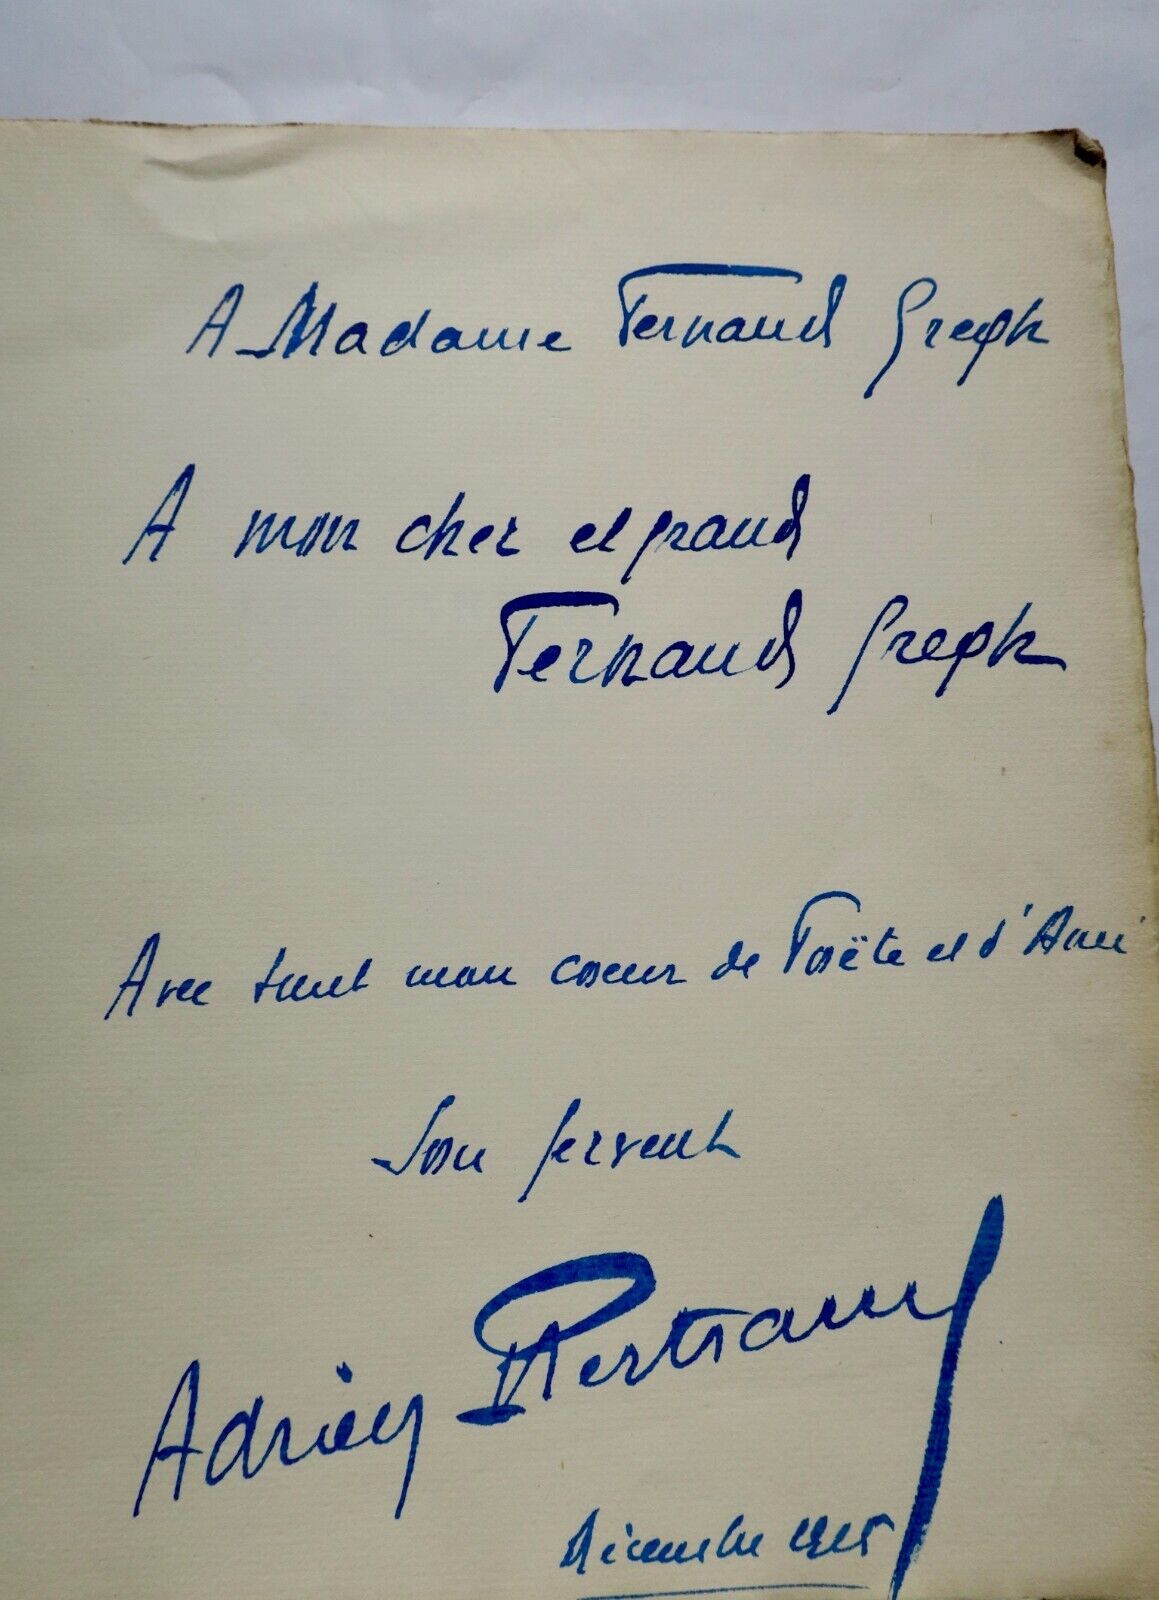 A Madame Fernand Gregh
A mon cher et grand
Fernand Gregh
Avec tout mon coeur de Poëte et d'Ami
Son fervent
Adrien Bertrand
Décembre 1915